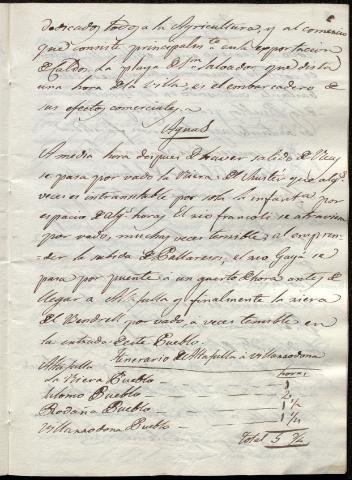 dedicados todos a la Agricultura, y al comercio
que consiste principalmte. en la exportacion
de Caldos. La playa de Sn. Salvador que dista
una hora de la Villa, es el embarcadero de
sus efectos comerciales.
Aguas
A media hora despues de haver salido de Reus
se pasa por vado la Riera que algs.
veces es intransitable por sola la Infanta. por
espacio de algs. horas. El rio francolí se atraviesa
por vado, muchas veces temible; al empren-
der la subida de Pallaresos, el rio Gayá se
pasa por puente a un quarto de hora antes de
llegar a Altafulla y finalmente la riera
del Bendrell por vado, a veces temible en
la entrada de este Pueblo.
Itinerario de Altafulla á Villarrodona
Altafulla horas
La Riera Pueblo 1
Pueblo
Rodoñá Pueblo
Villarrodona Pueblo
Total 5